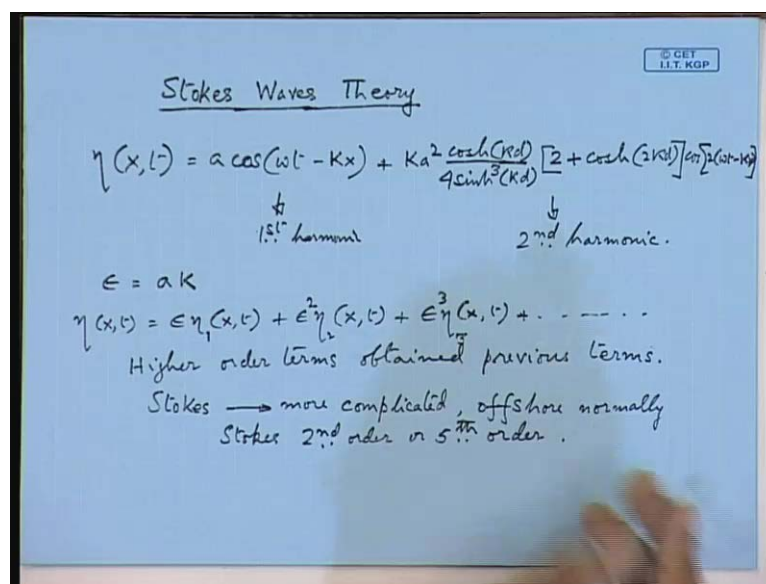 © CET
I.I.T. KGP
Stokes Waves Theory
η(x,t) = a cos(ωt - Kx) + Ka² cosh(Kd)/4sinh³(Kd) [2 + cosh(2Kd)] cos[2(ωt-Kx)]
1st harmonic 2nd harmonic.
ε = aK
η(x,t) = εη₁(x,t) + ε²η₂(x,t) + ε³η₃(x,t) + . - - - - - .
Higher order terms obtained previous terms.
Stokes → more complicated, offshore normally
Stokes 2nd order or 5th order.